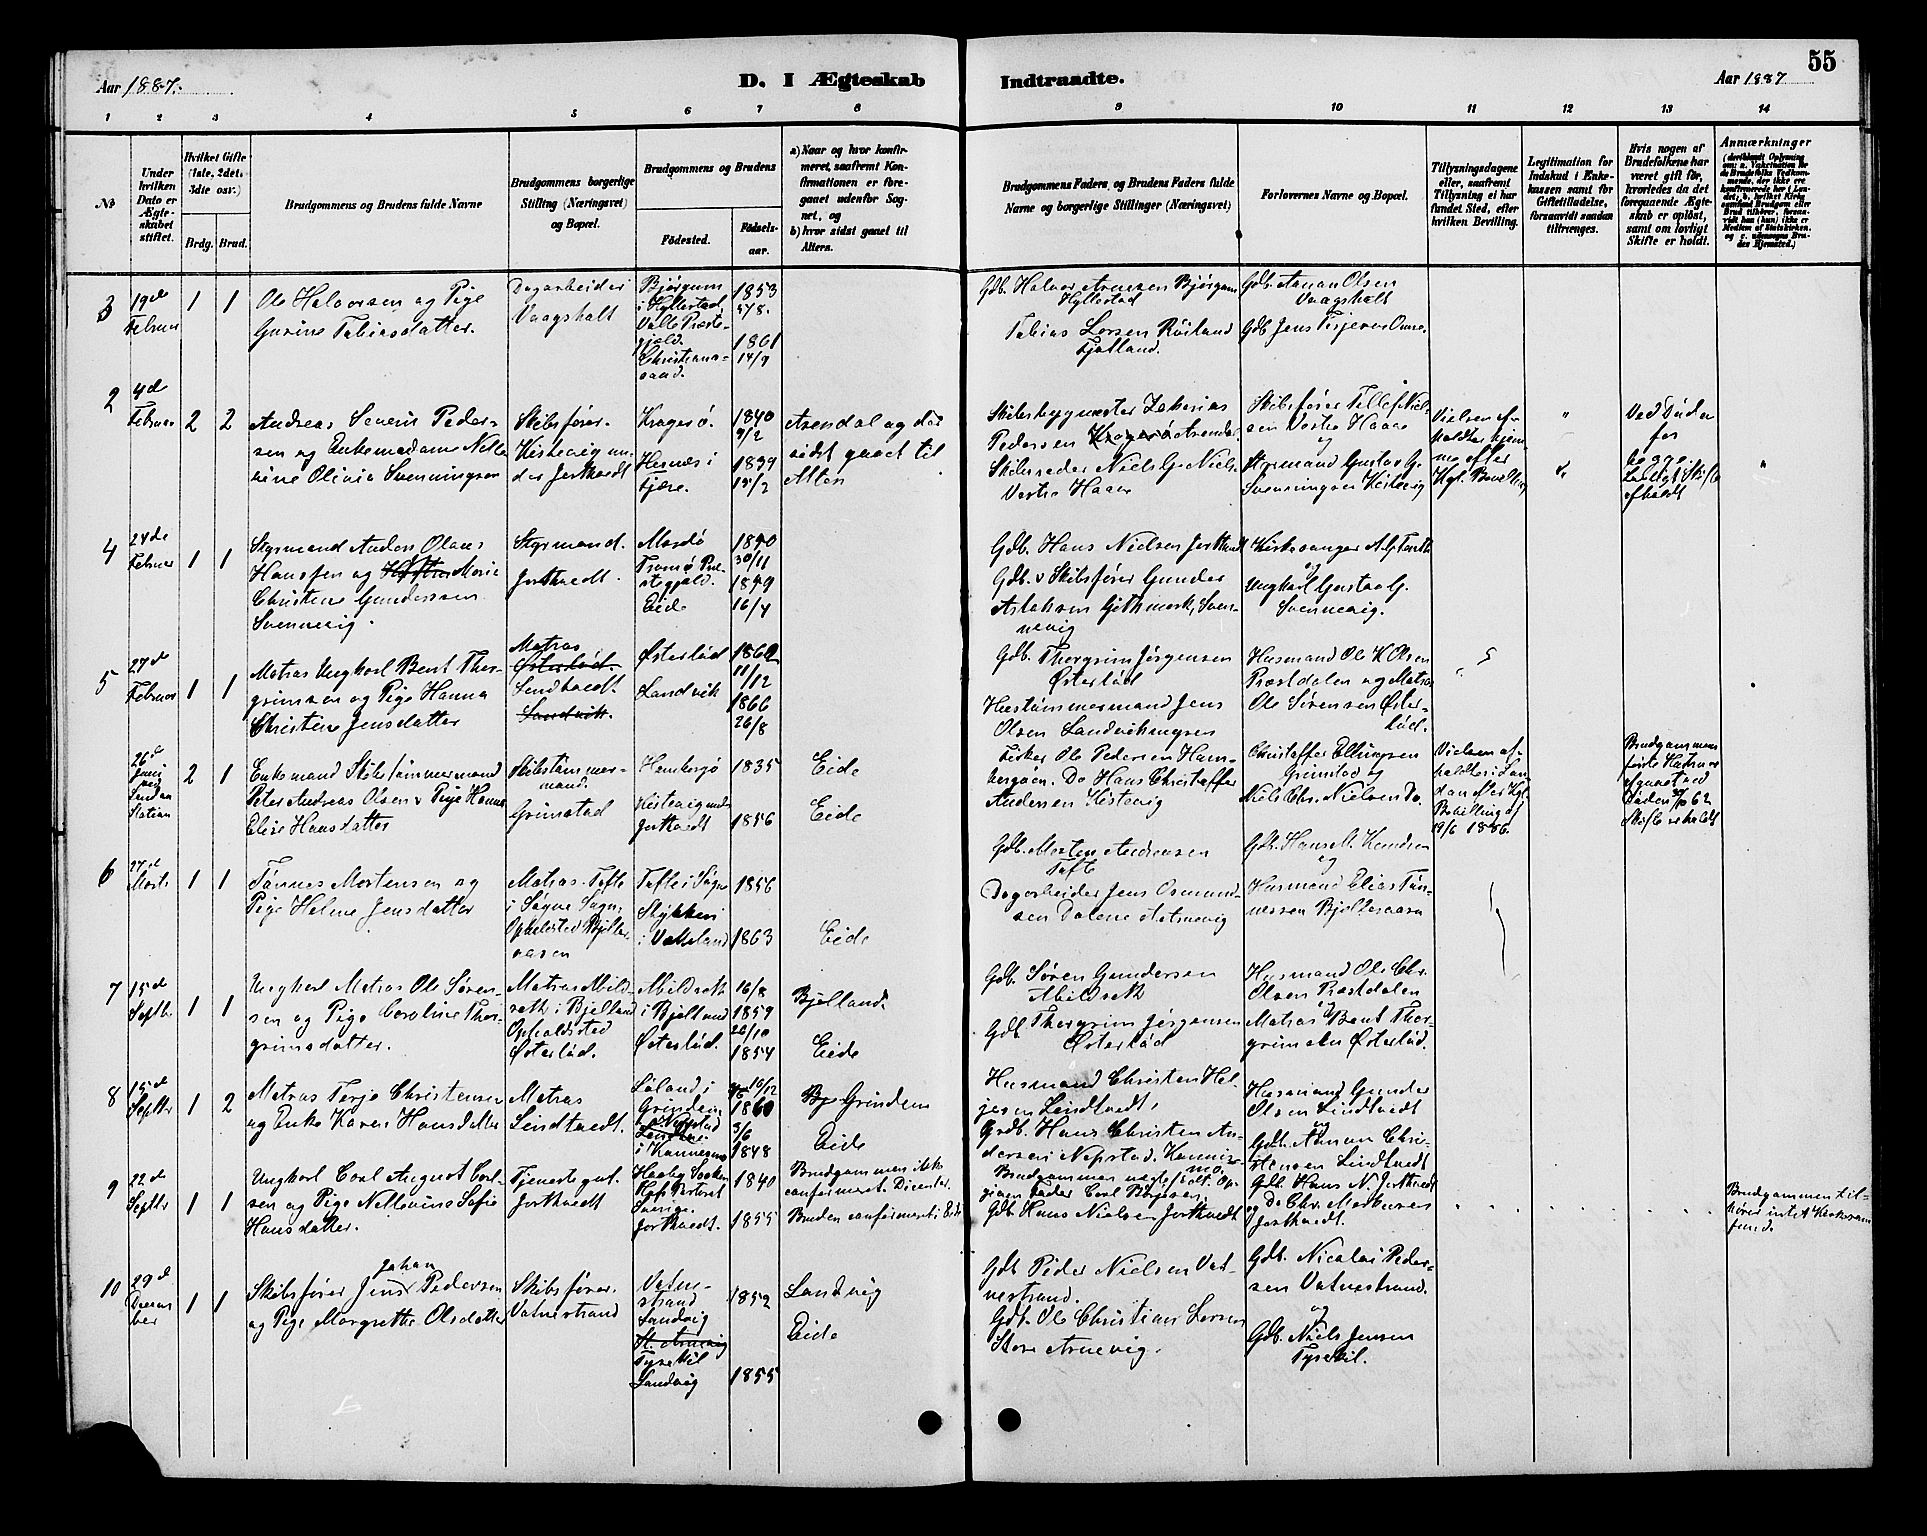 55
Aar 1887.
D. I Ægteskab Indtraadte.
Aar 1887
1 2 3 4 5 6 7 8 9 10 11 12 13 14
№
Under hvilken Dato er Ægteskabet stiftet.
Hvilket Gifte (1ste, 2det, 3die osv.)
Brdg. Brud.
Brudgommens og Brudens fulde Navne
Brudgommens borgerlige Stilling (Næringsvei) og Bopæl.
Brudgommens og Brudens
Fødested.
Fødselsaar.
a) Naar og hvor konfirmeret, saafremt Konfirmationen er foregaaet udenfor Sognet, og
b) hvor sidst gaaet til Alters.
Brudgommens Faders og Brudens Faders fulde Navne og borgerlige Stillinger (Næringsvei)
Forlovernes Navne og Bopæl.
Tillysningsdagene eller, saafremt Tillysning ei har fundet Sted, efter hvilken Bevilling.
Legitimation for Indskud i Enkekassen samt for Giftetilladelse, forsaavidt saadan tiltrænges.
Hvis nogen af Brudefolkene har været gift før, hvorledes da det foregaaende Ægteskab er opløst, samt om lovligt Skifte er holdt.
Anmærkninger
3
19de Februar
1 1
Ole Halvorsen og Pige
Gurine Tobiasdatter.
Dagarbeider
Vaagsholt
Bjørgum
i Hyllestad,
Valle Præste-
gjæld.
Christians-
sand.
1853
5/8.
1861
14/9
Gdb. Halvor Arnesen Bjørgum
Hyllestad
Tobias Larsen Røiland
Fjotland.
Gdb. Aanan Olsen
Vaagsholt
Gdb Jens Terjesen Omre.
2
4de Februar
2 2
Andreas Severin Peder-
sen og Enkemadame Nelle
sine Olivia Svenningsen
Skibsfører.
Kistevig un-
der Jortvedt
Kragerø.
Hesnes i
Fjære.
1840
9/2
1839
15/2
Arendal og der
sidst gaaet til
Alters
Skibsbygmester Zakarias
Pedersen Kragerø Arendal
Skibsreder Niels G. Niels.
Vestre Haave
Skibsfører Tellef Niel-
sen Vestre Haave
og
Styrmand Gustav G.
Svenningsen Kistevig
Vielsen af-
holdtes hjem-
me efter
Kgl. Bevilling
"
Ved Døden
for
begge.
Lovligt Skifte
afholdt
"
4
24de Februar
1 1
Styrmand Anders Olaus
Hanssen og Marie
Christine Gunderssen
Svennevig.
Styrmand.
Jortvedt.
Merdø
Tromø Præ-
stegjæld.
Eide
1850
30/11
1859
16/4
Gdb. Hans Nielsen Jortvedt
Gdb. v Skibsfører Gunder
Aslaksen Gjithmark, Sven-
nevig
Kirkesanger
og
Ungkarl Gustav G.
Svennevig.
5
27de Februar
1 1
Matros Ungkarl Bent Thor-
grimsen og Pige Hanna
Christine Jensdatter
Matros
Østerlød.
Lindtvedt.
Landvik.
Østerlød
Landvik
1862
11/12
1866
26/8
Gdb. Thorgrim Jørgensen
Østerlød
Hustømmermand Jens
Olsen Landvikmyren
Husmand Ole K Olsen
Præstdalen og Matros
Ole Sørensen Øster-
lød.
26de Juni
2 1
Enkemand Skibstømmermand
Peter Andreas Olsen v Pige Hanna
Elise Hansdatter
Skibstømmer-
mand.
Grimstad
Homborsø
Kistevig under
Jortvedt
1835
1856
Eide
Eide
Fisker Ole Pedersen Hom-
borgøen. Do Hans Christoffer
Andersen Kistevig
Christoffer Ellingsen
Grimstad og
Niels Chr. Nielsen Do.
Vielsen af-
holdtes i Lon-
don efter Kgl.
Bevilling af
19/6 1886.
Brudgommens
første Hustru er
afgaaet ved
Døden 62
Skifte er holdt
6
27de Marts
1 1
Tønnes Mortensen og
Pige Helene Jensdatter
Matros Tofte
i Søgne Sogn,
Opholdssted Bjelle-
aasen
Tofte i Søgne
i Vatneland
1856
1863
Eide
Gdb. Morten Andreasen
Tofte
Dagarbeider Jens Osmund-
sen Dalene Aatnevig
Gdb. Hans M. Knudsen
og
Husmand Elias Tøn-
nessen Bjelleraasen
7
15de Septbr
1 1
Ungkarl Matros Ole Søren-
sen og Pige Caroline Thor-
grimsdatter.
Matros Abild-
sæth i Bjelland
Opholdssted
Østerlød.
Abildsæth
i Bjelland
Østerlød.
16/8
1859
22/10
1854
Bjelland.
Eide
Gdb. Søren Gundersen
Abildsæth
Gdb. Thorgrim Jørgensen
Østerlød
Husmand Ole Chr.
Olsen Præstdalen
og
Matros Bent Thor-
grimsen Østerlød.
8
15de Septbr
1 2
Matros Terje Christensen
og Enke Karen Hansdatter
Matros
Lindtvedt.
Løland i
Grindem
Nepstad
i Konnesmo
10/12
1860
3/6
1848
Grindem
Eide
Husmand Christen Hel-
jesen Lindtvedt,
Gdb. Hans Christen An-
dersen Nepstad, Konnis-
mo.
Husmand Gunder
Olsen Lindtvedt
og
Gdb. Aanon Chri-
stensen Lindtvedt
9
22de Septbr
1 1
Ungkarl Carl August Carl-
sen og Pige Nellevine Sofie
Hansdatter.
Tjenestegut.
Jortvedt
Haaby Socken
Sverige.
Jortvedt.
1840
1855
Brudgommen ikke
confirmeret. Dissenter.
Bruden confirmeret i Eide
Brudgommen uægtefødt. Op-
given Fader Carl Børjesen.
Gdb. Hans Nielsen Jortvedt
Gdb. Hans N. Jortvedt
og Do Chr. Mathiesen
Jortvedt.
Brudgommen til-
hører intet Kirkesam-
fund.
10
29de Decem-
ber
1 1
Johan
Skibsfører Jens Pedersen
og Pige Margrethe Olsdatter
Skibsfører.
Vatnestrand
Vatne-
strand
Landvig
St. Arnevig
Tyssekil
Landvig
1852
1855
Landvig
Eide
Gdb. Peder Nielsen Vat-
nestrand.
Gdb. Ole Christian Larsen
Store Arnevig.
Gdb. Nicolai Peder-
sen Vatnestrand.
og
Gdb. Niels Jensen
Tyssekil.